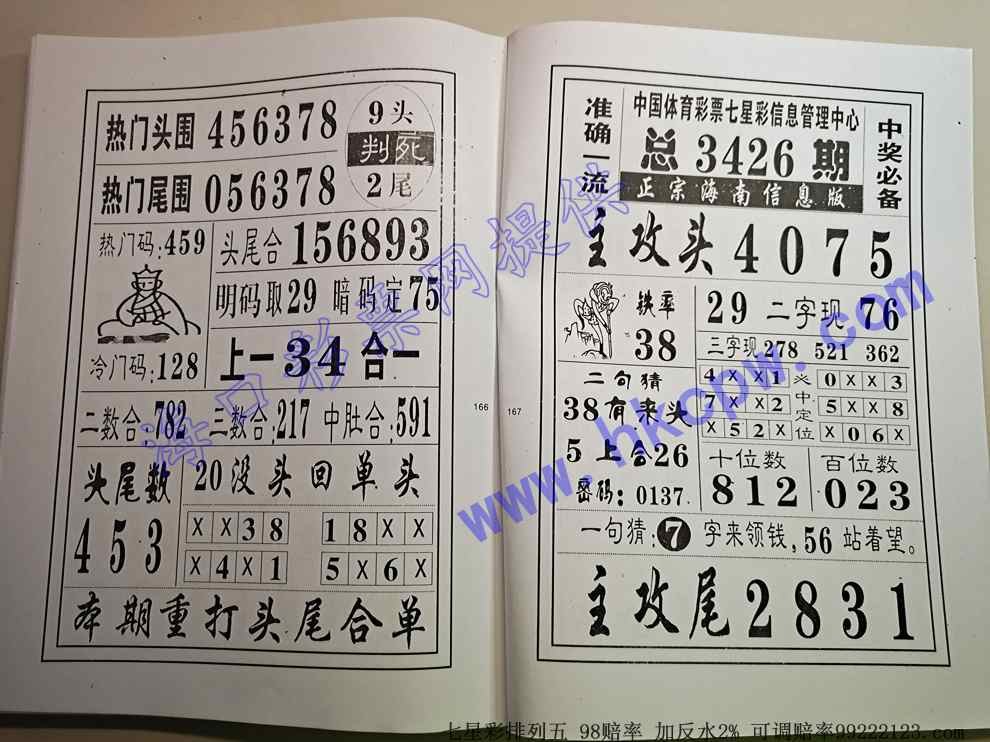 热门头围 456378
9头
判死
2尾
热门尾围 056378
热门码:459
头尾合 156893
明码取29 暗码定75
冷门码:128
上一34合一
二数合:782 三数合:217 中肚合:591
头尾数
453
20没头回单头
XX38 18XX
X4X1 5X6X
本期重打头尾合单
166
167
准确一流
中国体育彩票七星彩信息管理中心
总 3426 期
正宗海南信息版
中奖必备
主攻头 4075
铁率
38
29 二字现 76
三字现 278 521 362
二句猜
38有来头
5上合26
密码:0137
4XX1 0XX3
7XX2 5XX8
X52X X06X
中定位
十位数
812
百位数
023
一句猜:7字来领钱,56站着望。
主攻尾 2831
海口彩票网提供
www.hkcpw.com
七星彩排列五 98赔率 加反水2% 可调赔率99222123.com